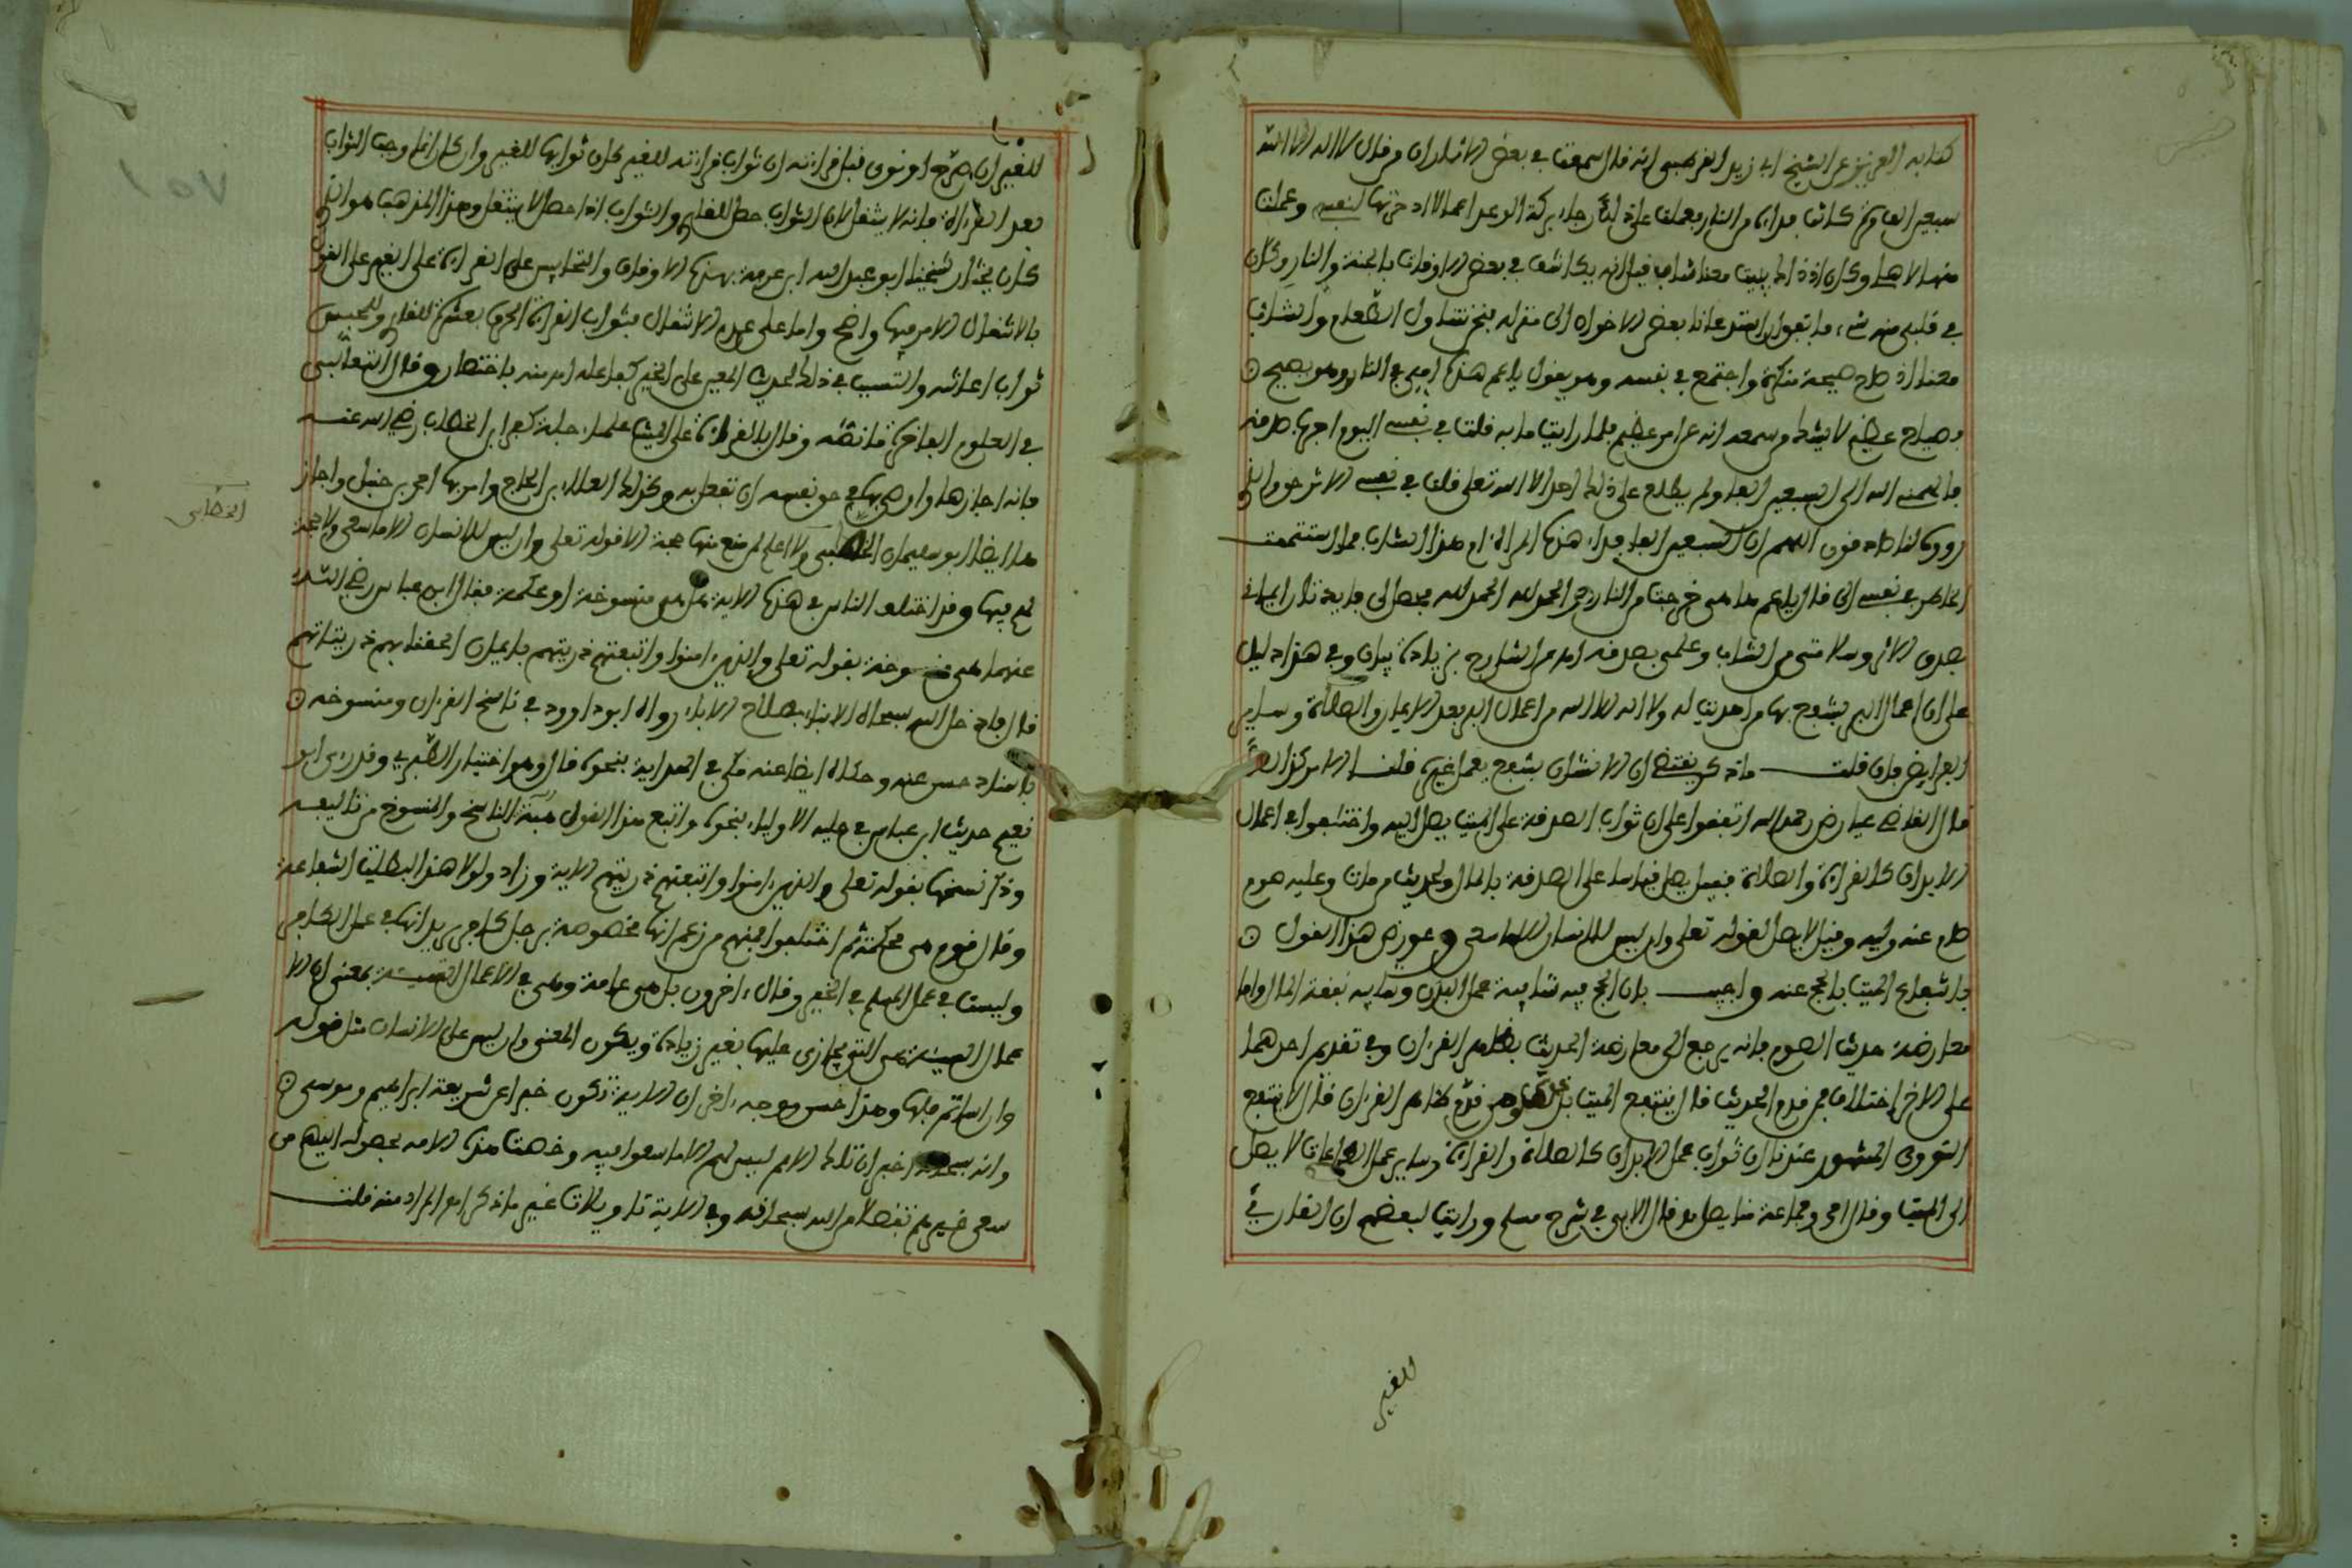 كتابه العزيز عن الشيخ ابي زيد القرطبي انه قال سمعت في بعض الاثار ان من قال لا اله الا الله
سبعين الف مرة كانت فداءه من النار فعملت على ذلك رجاء بركة الوعد اعمالا ادخرتها لنفسي وعملت
منها لاهلي وكان اذ ذاك يبيت معنا شاب فيقال انه يكاشف في بعض الاوقات بالجنة والنار وكان
في قلبي منه شيء فاتفق ان استدعانا بعض الاخوان الى منزله فنحن نتناول الطعام والشاب
معنا اذ صاح صيحة منكرة واجتمع في نفسه وهو يقول يا عم هذه امي في النار وهو يصيح
بصياح عظيم لا يشك من سمعه انه عن امر عظيم فلما رايت ما به قلت في نفسي اليوم اجرب صدقه
فالهمني الله الى السبعين الفا ولم يطلع على ذلك احد الا الله تعلى فقلت في نفسي الاثر حق والذين
رووه لنا صادقون اللهم ان السبعين الفا فداء هذه المراة ام هذا الشاب فما استتممت
الخاطر في نفسي الى ان قال يا عم ها هي خرجت من النار الحمد لله الحمد لله فحصل لي فايدتان ايماني
بصدق الاثر وسلامتي من الشاب وعلمي بصدقه اه من الشارح بزيادة بيان وفي هذا دليل
على ان اعمال البر ينتفع بها من اهديت له ولا اله الا الله من اعمال البر بعد الايمان والصلاة وساير
الفرايض فان قلت ما ذكر يقتضي ان الانسان ينتفع بعمل غيره قلت الامر كذلك
قال القاضي عياض رحمه الله اتفقوا على ان ثواب الصدقة على الميت يصل اليه واختلفوا في اعمال
الابدان كالقراءة والصلاة فقيل يصل قياسا على الصدقة بالمال ولحديث من مات وعليه صوم
صام عنه وليه وقيل لا يصل لقوله تعلى وان ليس للانسان الا ما سعى وعورض هذا القول
بانتفاع الميت بالحج عنه واجيب بان الحج فيه شايبة عمل البدن وشايبة نفقة المال واما
معارضة حديث الصوم فانه يرجع الى معارضة الحديث بظاهر القران وفي تقديم احدهما
على الاخر اختلاف فمن قدم الحديث قال ينتفع الميت بذلك ومن قدم ظاهر القران قال لا ينتفع
النووي المشهور عندنا ان ثواب عمل الابدان كالصلاة والقراءة وساير عمل الطاعات لا يصل
الى الميت وقال احمد وجماعة منا يصل وقال الابي في شرح مسلم ورايت لبعضهم ان القارئ
للغير
للغير ان صرح او نوى قبل قراءته ان ثواب قراءته للغير كان ثوابها للغير وان كان انما وهب الثواب
بعد القراءة فانه لا ينتقل لان الثواب حصل للقارئ والثواب اذا حصل لا ينتقل وهذا المذهب هو الذي
كان يختار شيخنا ابو عبد الله ابن عرفة بهذه الاوقات والتحابيس على القراءة على الغير على القول
بالانتقال الامر فيها واضح واما على عدم الانتقال فثواب القراءة الحرف بعشرة للقارئ وللمحبس
ثواب اعانته والتسبب في ذلك لحديث المعين على الخير كفاعله اه منه باختصار وقال الثعالبي
في العلوم الفاخرة ما نصه وقال بالقراءة على الميت علماء جلة كعمر ابن الخطاب رضي الله عنه
فانه اجازها واوصى بها في حق نفسه ان تفعل به وكذلك العلاء بن الحاج وامر بها احمد بن حنبل واجاز
ها ايضا ابو سليمان الخطابي ولا اعلم لم منع منها حجة الا قوله تعلى وان ليس للانسان الا ما سعى ولا حجة
لهم فيها وقد اختلف الناس في هذه الاية هل هي منسوخة او محكمة فقال ابن عباس رضي الله
عنهما هي منسوخة بقوله تعلى والذين ءامنوا واتبعتهم ذريتهم بايمان الحقنا بهم ذرياتهم
قال فادخل الله سبحانه الابناء بصلاح الاباء رواه ابو داوود في ناسخ القرءان ومنسوخه
باسناد حسن عنه وحكاه ايضا عنه مكي في الهداية بنحوه قال وهو اختيار الطبري وقد روى ابو
نعيم حديث ابن عباس في حلية الاولياء بنحوه واتبع هذا القول هبة الناسخ والمنسوخ من تاليفه
وذكر نسخها بقوله تعلى والذين ءامنوا واتبعتهم ذريتهم الاية وزاد ولولا هذا لبطلت الشفاعة
وقال قوم هي محكمة ثم اختلفوا فمنهم من زعم انها مخصوصة برجل كافر يريد انها في عمل الكافر
وليست في عمل المسلم في الخير وقال ءاخرون بل هي عامة وهي في الاعمال السيئة بمعنى ان الا
عمال السيئة هي التي يجازى عليها بغير زيادة ويكون المعنى وان ليس على الانسان مثل قوله
وان اساتم فلها وهذا حسن ووجه ءاخر ان الاية تكون خبرا عن شريعة ابراهيم وموسى
وانه سبحانه اخبر ان تلك الامم ليس لهم الا ما سعوا فيه وخصت هذه الامة بحصوله اليهم من
سعي غيرهم تفضلا من الله سبحانه وفي الاية تاويلات غير ما ذكر اه المراد منه قلت
الخطابي
١٥٧